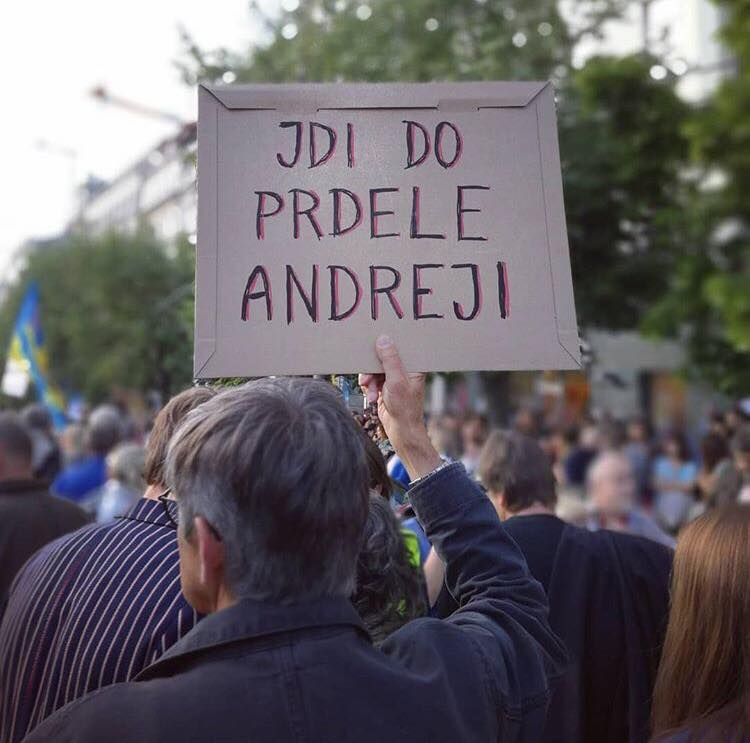 JDI DO
PRDELE
ANDREJI